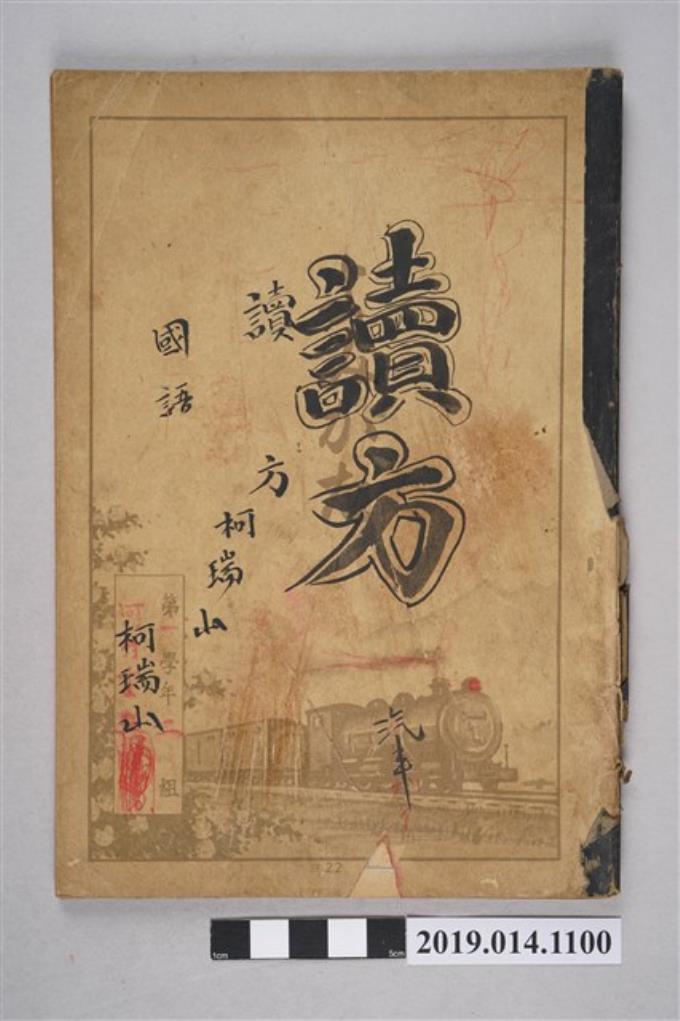 讀方
讀方
柯瑞山
國語
汽車
第一學年二組
柯瑞山
22
1cm
5cm
2019.014.1100